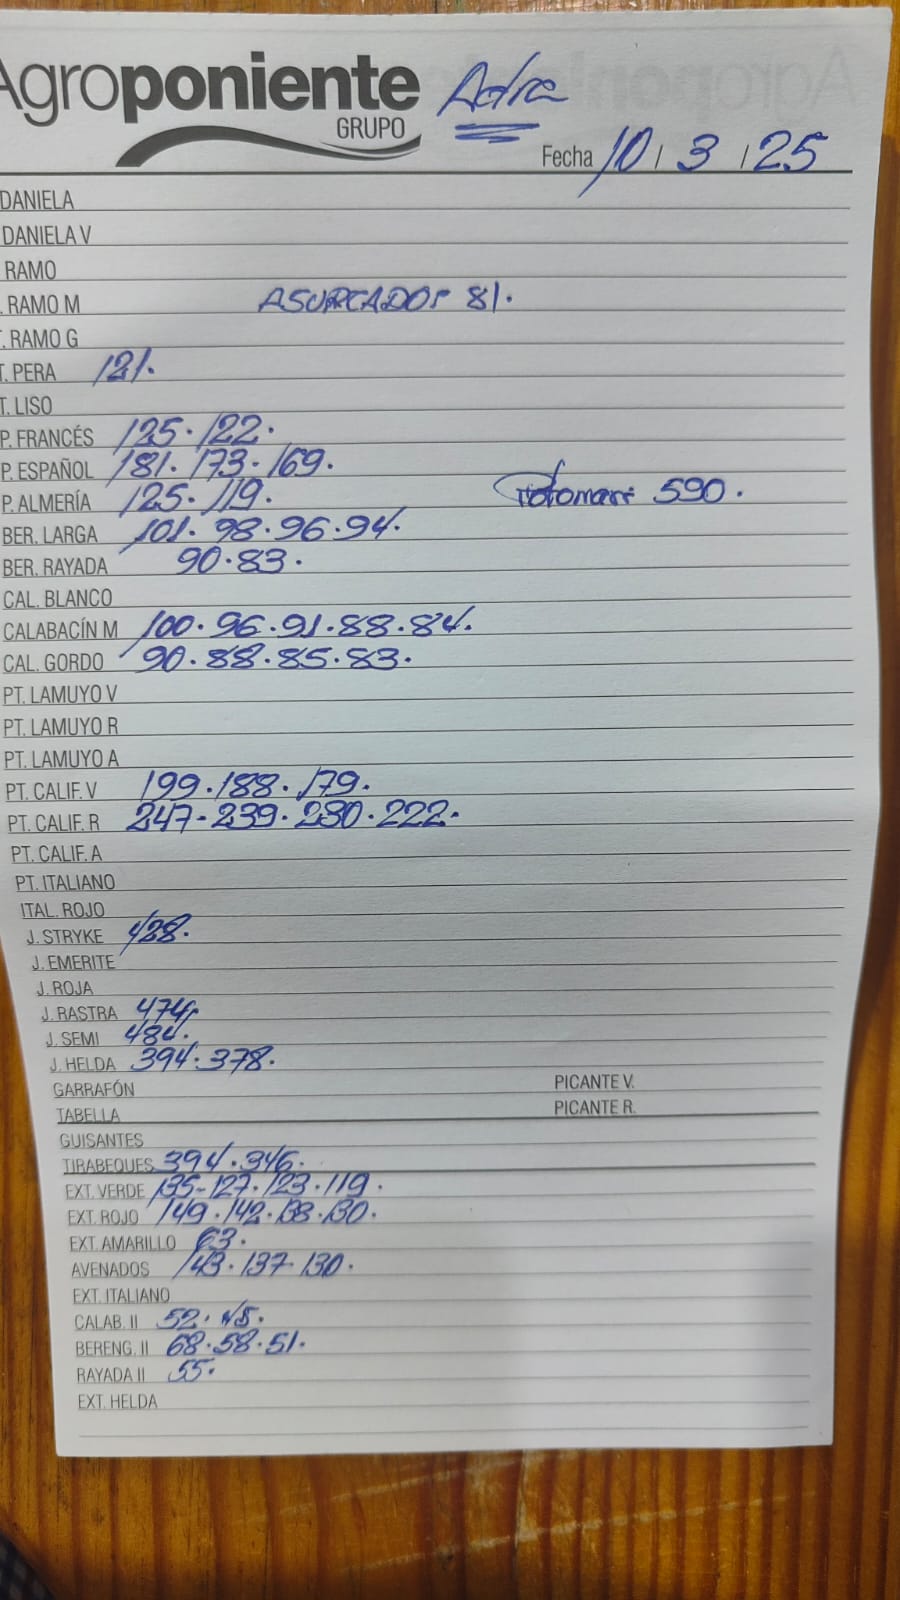 Agroponiente
GRUPO
Adra
Fecha 10 / 3 / 25
DANIELA
DANIELA V
RAMO
. RAMO M ASURCADOS 81.
T. RAMO G
T. PERA 121.
T. LISO
P. FRANCÉS 125. 122.
P. ESPAÑOL 181. 173. 169.
P. ALMERÍA 125. 119. 590.
BER. LARGA 101. 98. 96. 94.
BER. RAYADA 90. 83.
CAL. BLANCO
CALABACÍN M 100. 96. 91. 88. 84.
CAL. GORDO 90. 88. 85. 83.
PT. LAMUYO V
PT. LAMUYO R
PT. LAMUYO A
PT. CALIF. V 199. 188. 179.
PT. CALIF. R 247- 239. 230. 222.
PT. CALIF. A
PT. ITALIANO
ITAL. ROJO
J. STRYKE 428.
J. EMERITE
J. ROJA
J. RASTRA 474.
J. SEMI 484.
J. HELDA 394. 378.
GARRAFÓN PICANTE V.
TABELLA PICANTE R.
GUISANTES
TIRABEQUES 394. 346.
EXT. VERDE 135- 127. 123. 119.
EXT. ROJO 149. 142. 138. 130.
EXT. AMARILLO 63.
AVENADOS 143. 137. 130.
EXT. ITALIANO
CALAB. II 52. 45.
BERENG. II 68. 58. 51.
RAYADA II 55.
EXT. HELDA